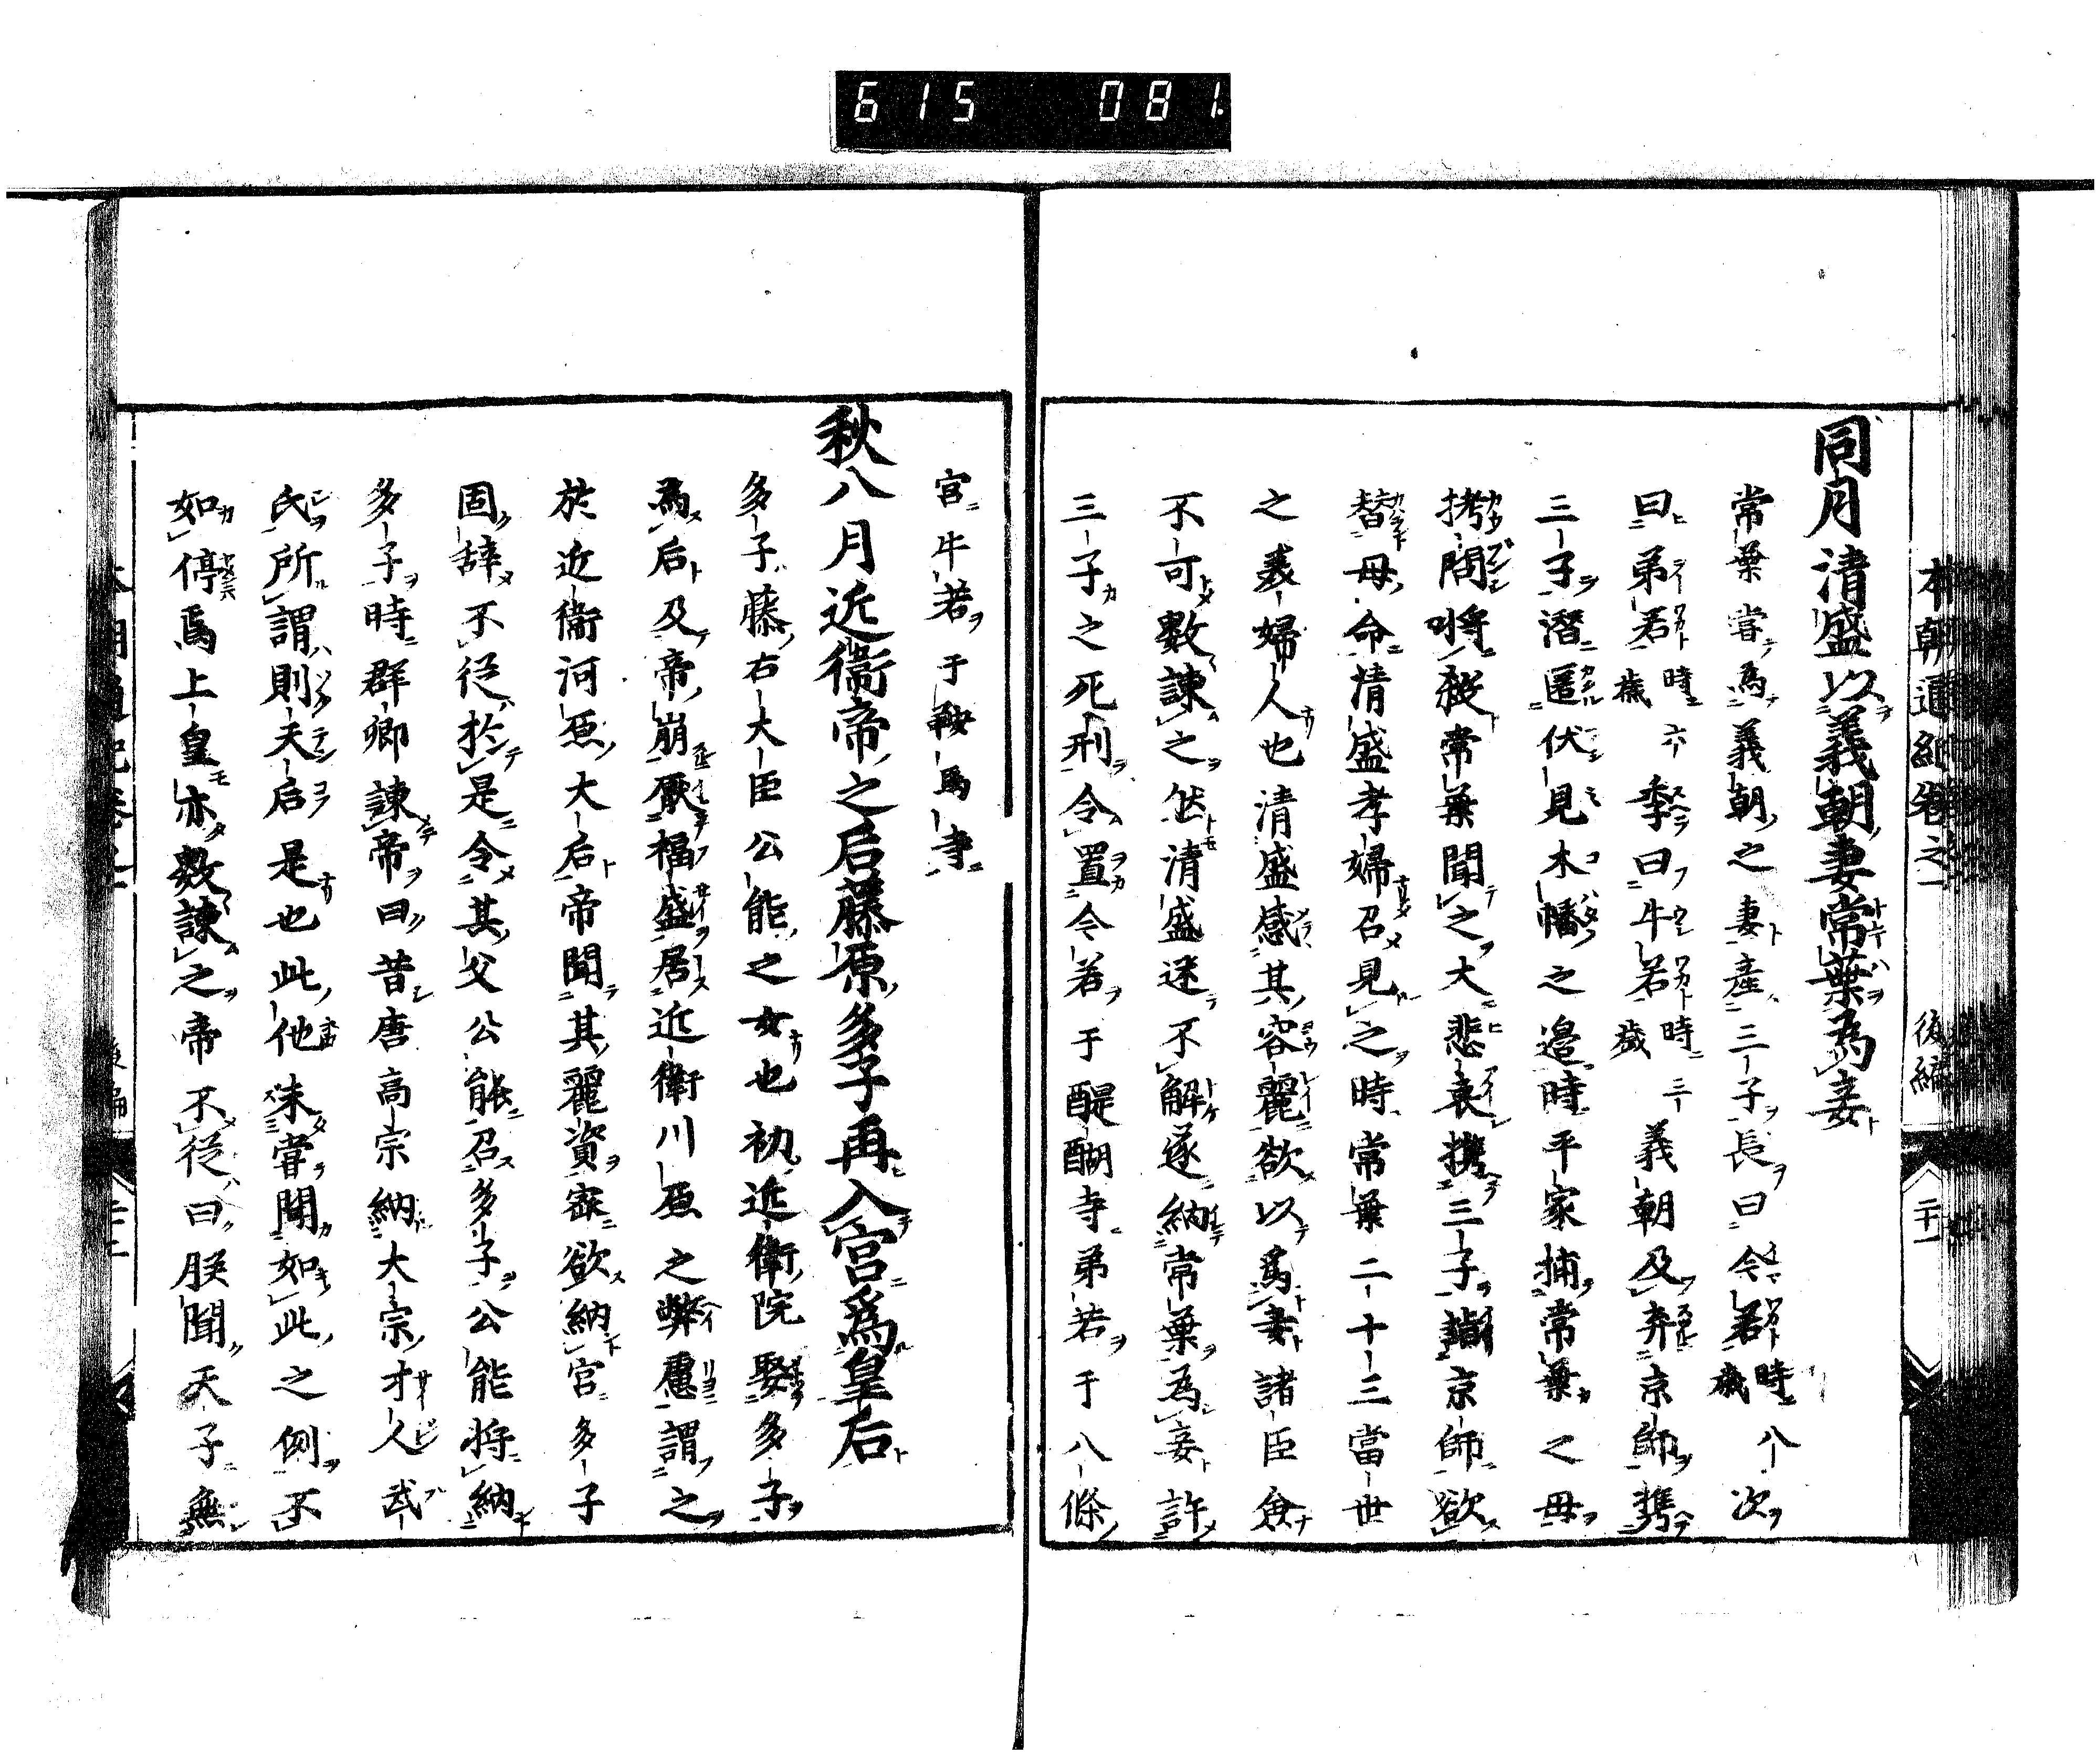 615 081
本朝通紀卷之一 後編 二十一
同月清盛以義朝妻常葉為妾
常葉嘗為義朝之妻產三子長曰今若時八歲次
曰弟若時六歲季曰牛若時三歲義朝及弃京師携
三子潛匿伏見木幡之邉時平家捕常葉之母
拷問將殺常葉聞之大悲哀携三子詣京師欲
替母命清盛孝婦召見之時常葉二十三當世
之美婦人也清盛感其容麗欲以為妻諸臣僉
不可數諫之然清盛迷不解遂納常葉為妾許
三子之死刑令置今若于醍醐寺弟若于八條
宮牛若于鞍馬寺
秋八月近衞帝之后藤原多子再入宮爲皇后
多子藤右大臣公能之女也初近衛院娶多子
為后及帝崩厭福盛居近衛川原之弊廬謂之
於近衞河原大后帝聞其麗資密欲納宮多子
固辞不従於是令其父公能召多子公能将納
多子時群卿諫帝曰昔唐高宗納大宗才人武
氏所謂則天后是也此他未嘗聞如此之例不
如停焉上皇亦數諫之帝不従曰朕聞天子無